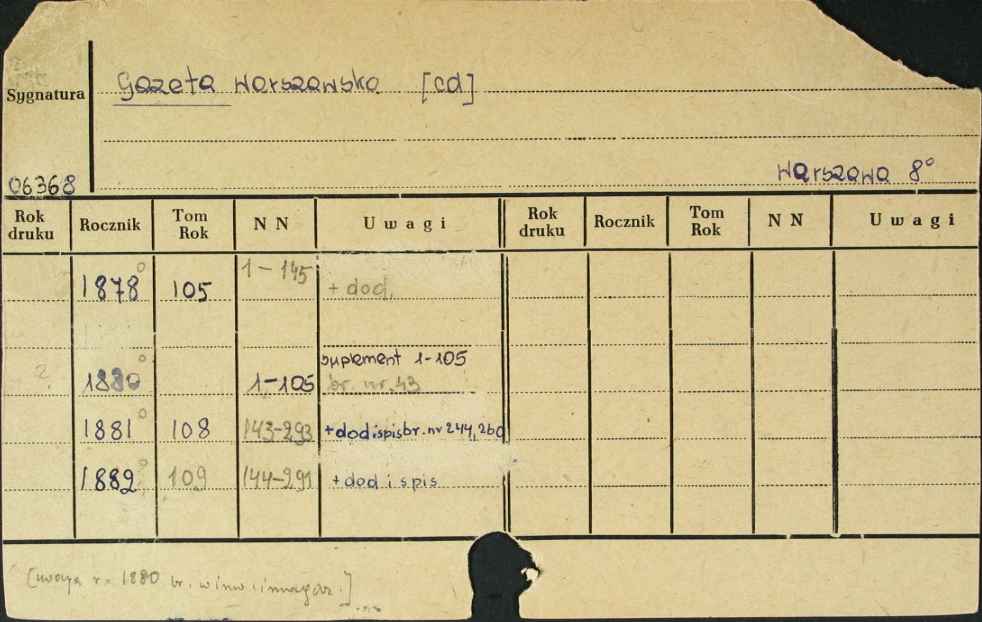 Sygnatura Gazeta Warszawska [cd]
Warszawa 8°
06368
Rok druku Rocznik Tom Rok NN Uwagi Rok druku Rocznik Tom Rok NN Uwagi
1878° 105 1-145 + dod.
suplement 1-105
1880° 1-105 br. nr. 43
1881° 108 143-293 + dod i spis br. nr 244, 260
1882° 109 144-291 + dod i spis
[uwaga r. 1880 br. w inw. i magaz.]